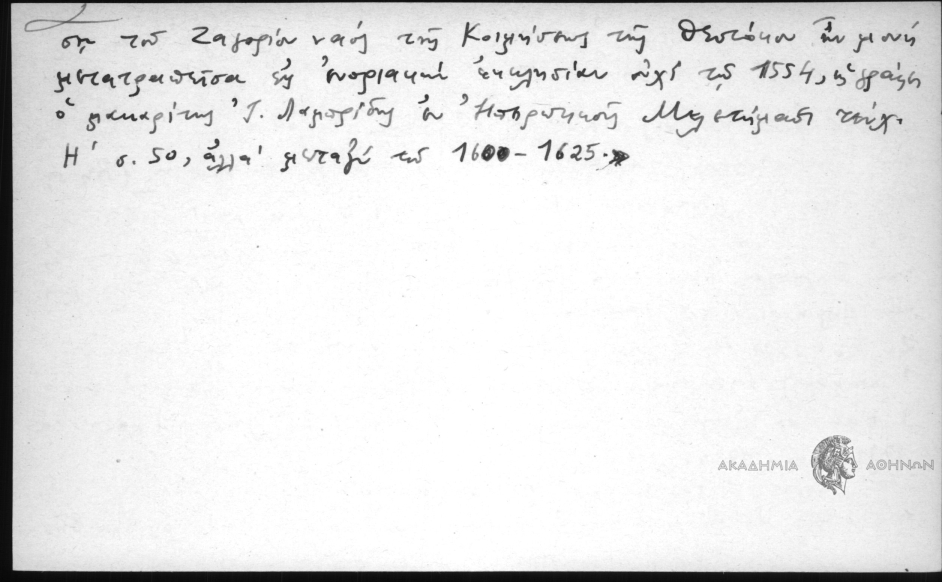 2
τοῦ Ζαγορίου ναός τῆς Κοιμήσεως τῆς Θεοτόκου ἦν μονή
μετατραπεῖσα εἰς ἐνοριακήν ἐκκλησίαν οὐχί τῷ 1554, ὡς γράφει
ὁ μακαρίτης Ἰ. Λαμπρίδης ἐν Ἠπειρωτικοῖς Μελετήμασι τεῦχ.
Η΄ σ. 50, ἀλλά μεταξύ τῶν 1600 - 1625.»
ΑΚΑΔΗΜΙΑ ΑΘΗΝΩΝ